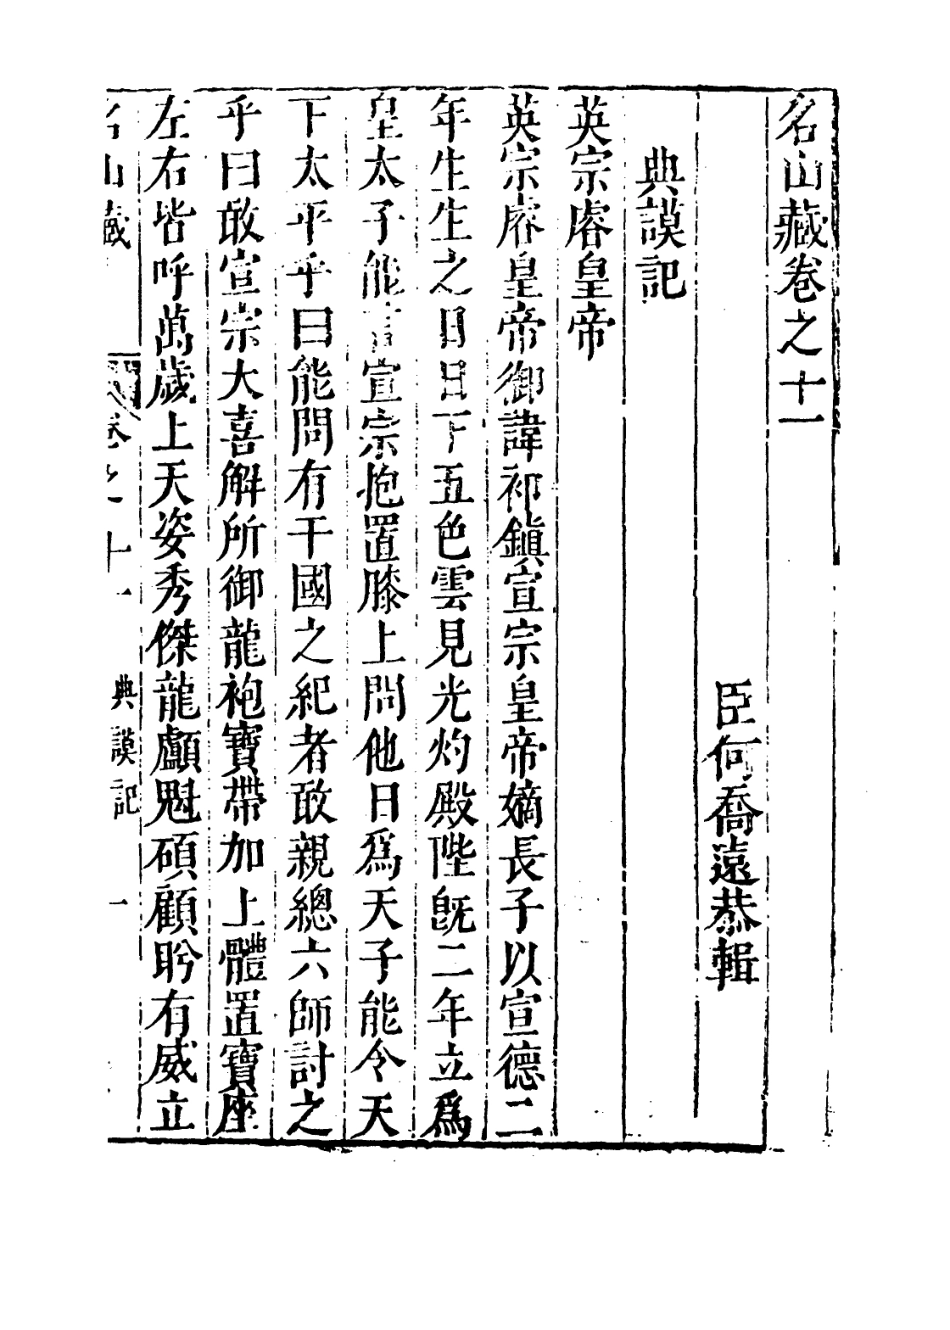 名山藏卷之十一
臣何喬遠恭輯
典謨記
英宗睿皇帝
英宗睿皇帝御諱祁鎮宣宗皇帝嫡長子以宣德二
年生生之日日下五色雲見光灼殿陛旣二年立爲
皇太子能言宣宗抱置膝上問他日爲天子能令天
下太平乎曰能問有干國之紀者敢親總六師討之
乎曰敢宣宗大喜解所御龍袍寶帶加上體置寶座
左右皆呼萬歲上天姿秀傑龍顱魁碩顧盻有威立
名山藏 卷之十一 典謨記 一